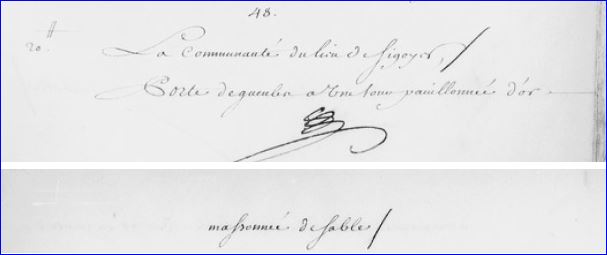 48.
20 ₶
La Communauté du lieu de Sigoyer,/
Porte de gueules a Une tour pavillonnée d'or
massonneé de sable/